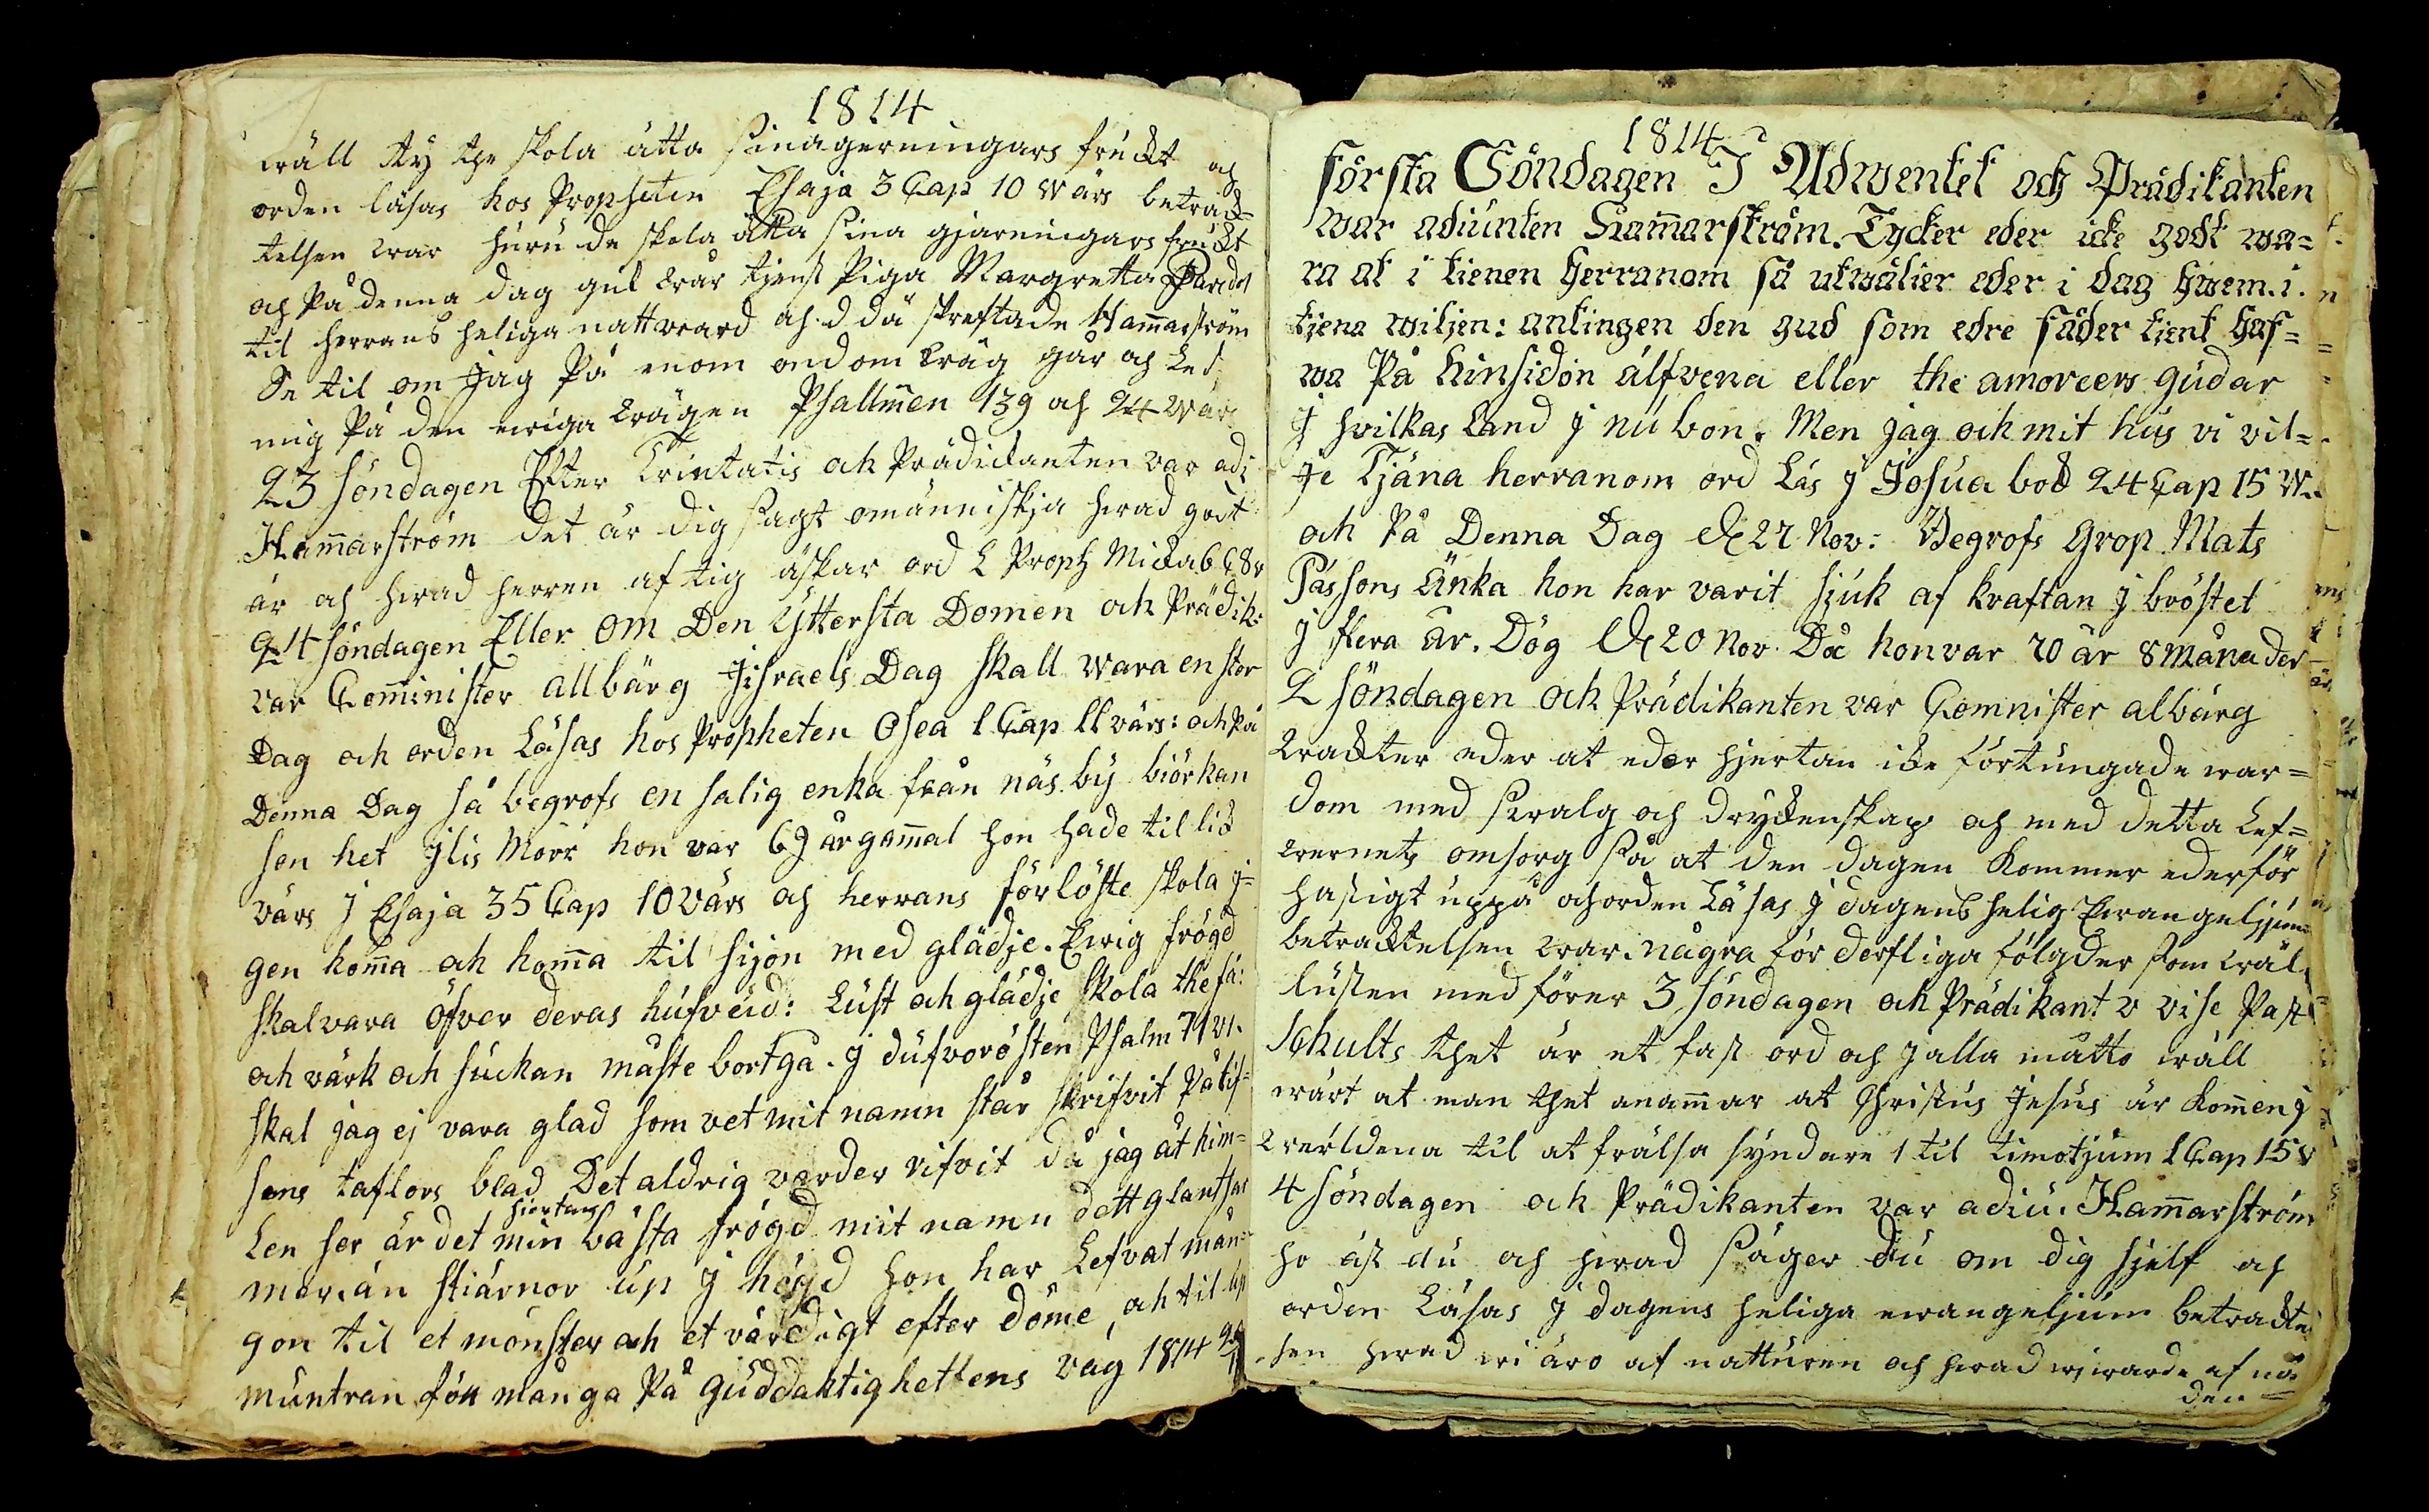 1814
wäll ty the skola äta sinagerningars fruckt och
orden läsas hos Propheten Esaja 3 Cap 10 wärs betrack=
telsen war huru de skola äta sina gjärningars frukt
och På denna dag gik wår tjenst Piga Margretta
til herrans heliga nattward och d då skreftade Hammarström
Se til om Jag På enom ondom wäg går och Led
mig På den ewiga wägen Psallmen 139 och 24 wärs
23 söndagen Efter Trintatis och Prädickanten var adj
Hammarström det är dig sagt o människja hwad godt
är och hwad herren af tig äskar ord L Proph Micka 6 C 8 v
24 söndagen Eller om Den Yttersta Domen och Prädik:
var Comminister allbärg Jisraels Dag skall wara en stor
Dag och orden Läsas hos Propheten Osea 1 Cap 11 värs: och På
Denna Dag så begrofs en salig enka från näs by biörkan
son het Jlis Morr hon var 69 år gammal hon hade til lik
värs J Esaja 35 Cap 10 värs och herrans förlöste skola j=
gen komma och komma til sijon med glädje. Ewig frögd
skal vara öfver deras hufvud: Lust och glädje skola the få:
och värk och suckan måste bortgå. J dufvorösten Psalm 71 v1.
skal jag ej vara glad som vet mit namn står skrifvit På lif=
sens taflors blad Det aldrig varder rifvit då jag åt him=
Len ser är det min hiertans bästa frögd mit namn dett glantsar
mer. än stiärnor up J högd hon har Lefvat mån=
gon til et mönster och et värdigt efter döme, och til up
muntran för många På guddaktighettens väg 1814
1814
första Söndagen J Adwentet och Prädikanten
war adiunten Hammarström. Tycker eder icke godt wa=
ra at i tienen herranom så utwälier eder i dag hwem. i.
tjena wiljen: antingen den gud som edre fäder tjent haf=
wa På hinsidon älfvena eller the amoreers gudar
J hvilkas Land J nu bon. Men jag och mit hus vi vil=
je Tjäna herranom ord Läs J Josua bok 24 Cap 15 W.
och På Denna Dag d 27 Nov: Begrofs Grop Mats
Pässons Änka hon har varit sjuk af kraftan J bröstet
J flera år. Dög d 20 Nov. Då hon var 70 år 8 månader
2 söndagen och Prädikanten var Comnister albärg
wackter eder at eder hjertan icke förtungade war=
dom med swalg och dryckenskap och med detta Lef=
wernets omsorg så at den dagen kommer eder för
hastigt uppå och orden Läsas J dagens helig Ewangeljum
betracktelsen war. några för derfliga fölgder som wäl
lusten med förer 3 söndagen och Prädikant v vise Past
Schults thet är et fast ord och J alla måtto wäll
wärt at man thet anammar at Christus Jesus är kommen J
werldena til at frälsa syndare 1 til timotjum 1 Cap 15 v
4 söndagen och Prädikanten var adiu. Hammarström
ho äst du och hwad säger du om dig sjelf och
orden Läsas J dagens heliga ewangeljum betrackte
sen hwad wi äro af natturen och hwad wj warde af nå
den=